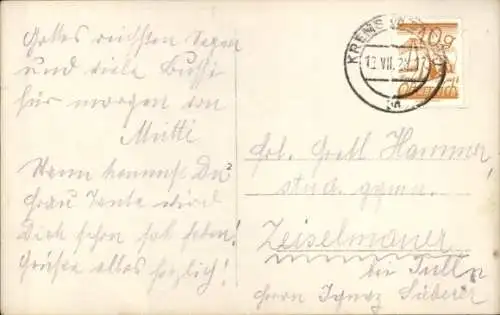 Gottes reichsten Segen
und viele Bussi
für morgen von
Mutti
Wann kommst Du?
Frau Tante wird
Dich schon
Grüße alles herzlich!
KREMS
13. VII. 29
10g
Österreich
Frl. Gretl Hammer
stud. gymn.
Zeiselmauer
bei Tulln
Herrn Ignaz